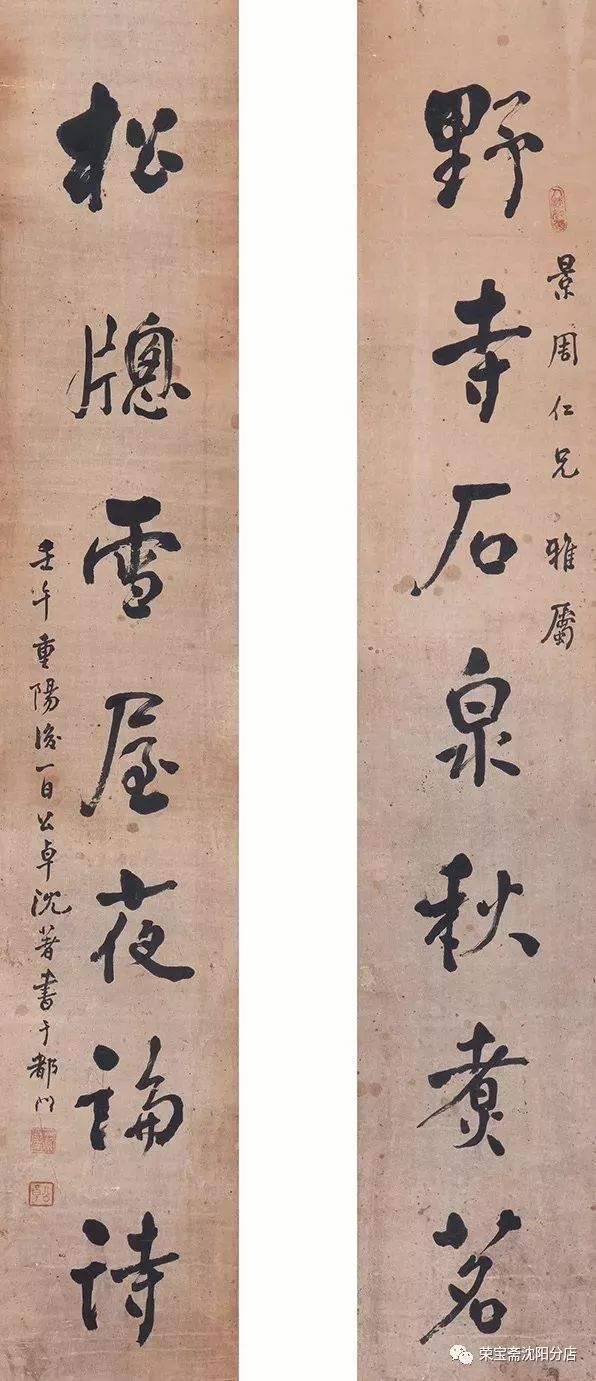 野寺石泉秋煮茗
景周仁兄雅屬
松牕雪屋夜論詩
壬午重陽後一日公卓沈著書于都門
荣宝斋沈阳分店